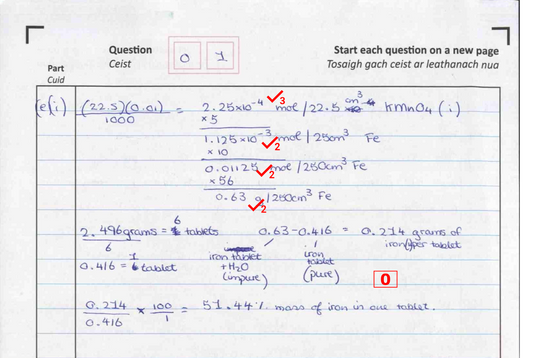 Question
Ceist
0 1
Start each question on a new page
Tosaigh gach ceist ar leathanach nua
Part
Cuid
(e(i) (22.5)(0.01) / 1000 = 2.25x10⁻⁴ mol / 22.5 cm³ KMnO4 (i)
3
x 5
1.125x10⁻³ mol / 25cm³ Fe
2
x 10
0.01125 mol / 250cm³ Fe
2
x 56
0.63 g / 250cm³ Fe
2
2.496grams = 6 tablets 0.63-0.416 = 0.214 grams of
6 iron/per tablet
0.416 = 1 tablet
iron tablet
+ H2O
(impure)
iron
tablet
(pure)
0
0.214 / 0.416 x 100 / 1 = 51.44% mass of iron in one tablet.